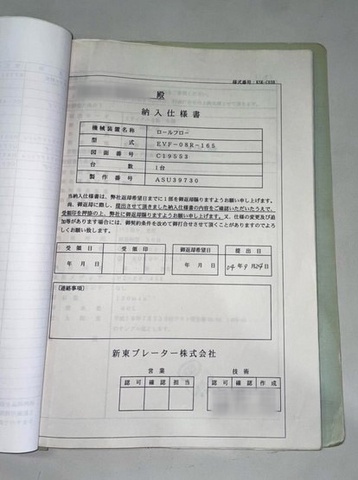 殿
納入仕様書
機械装置名称 ロールブロー
型式 EVF-08R-165
図面番号 C19553
台数 1台
製作番号 ASU39730
当納入仕様書は、弊社返却希望日までに1部を御返却賜りますようお願い申し上げます。
尚、御返却に際し、提出させて頂きました納入仕様書の内容をご確認いただいたうえで、
受領印を押印の上、弊社に御返却賜りますようお願い申し上げます。又、仕様の変更及び追
加等がありますれば場合には、御契約条件を含めて御打合せさせて頂くことがありますのでよろ
しくお願い致します。
受領日 受領印 御返却希望日 提出日
年 月 日 年 月 日 04年9月24日
[連絡事項]
新東ブレーター株式会社
営業 技術
認可 確認 担当 認可 確認 作成